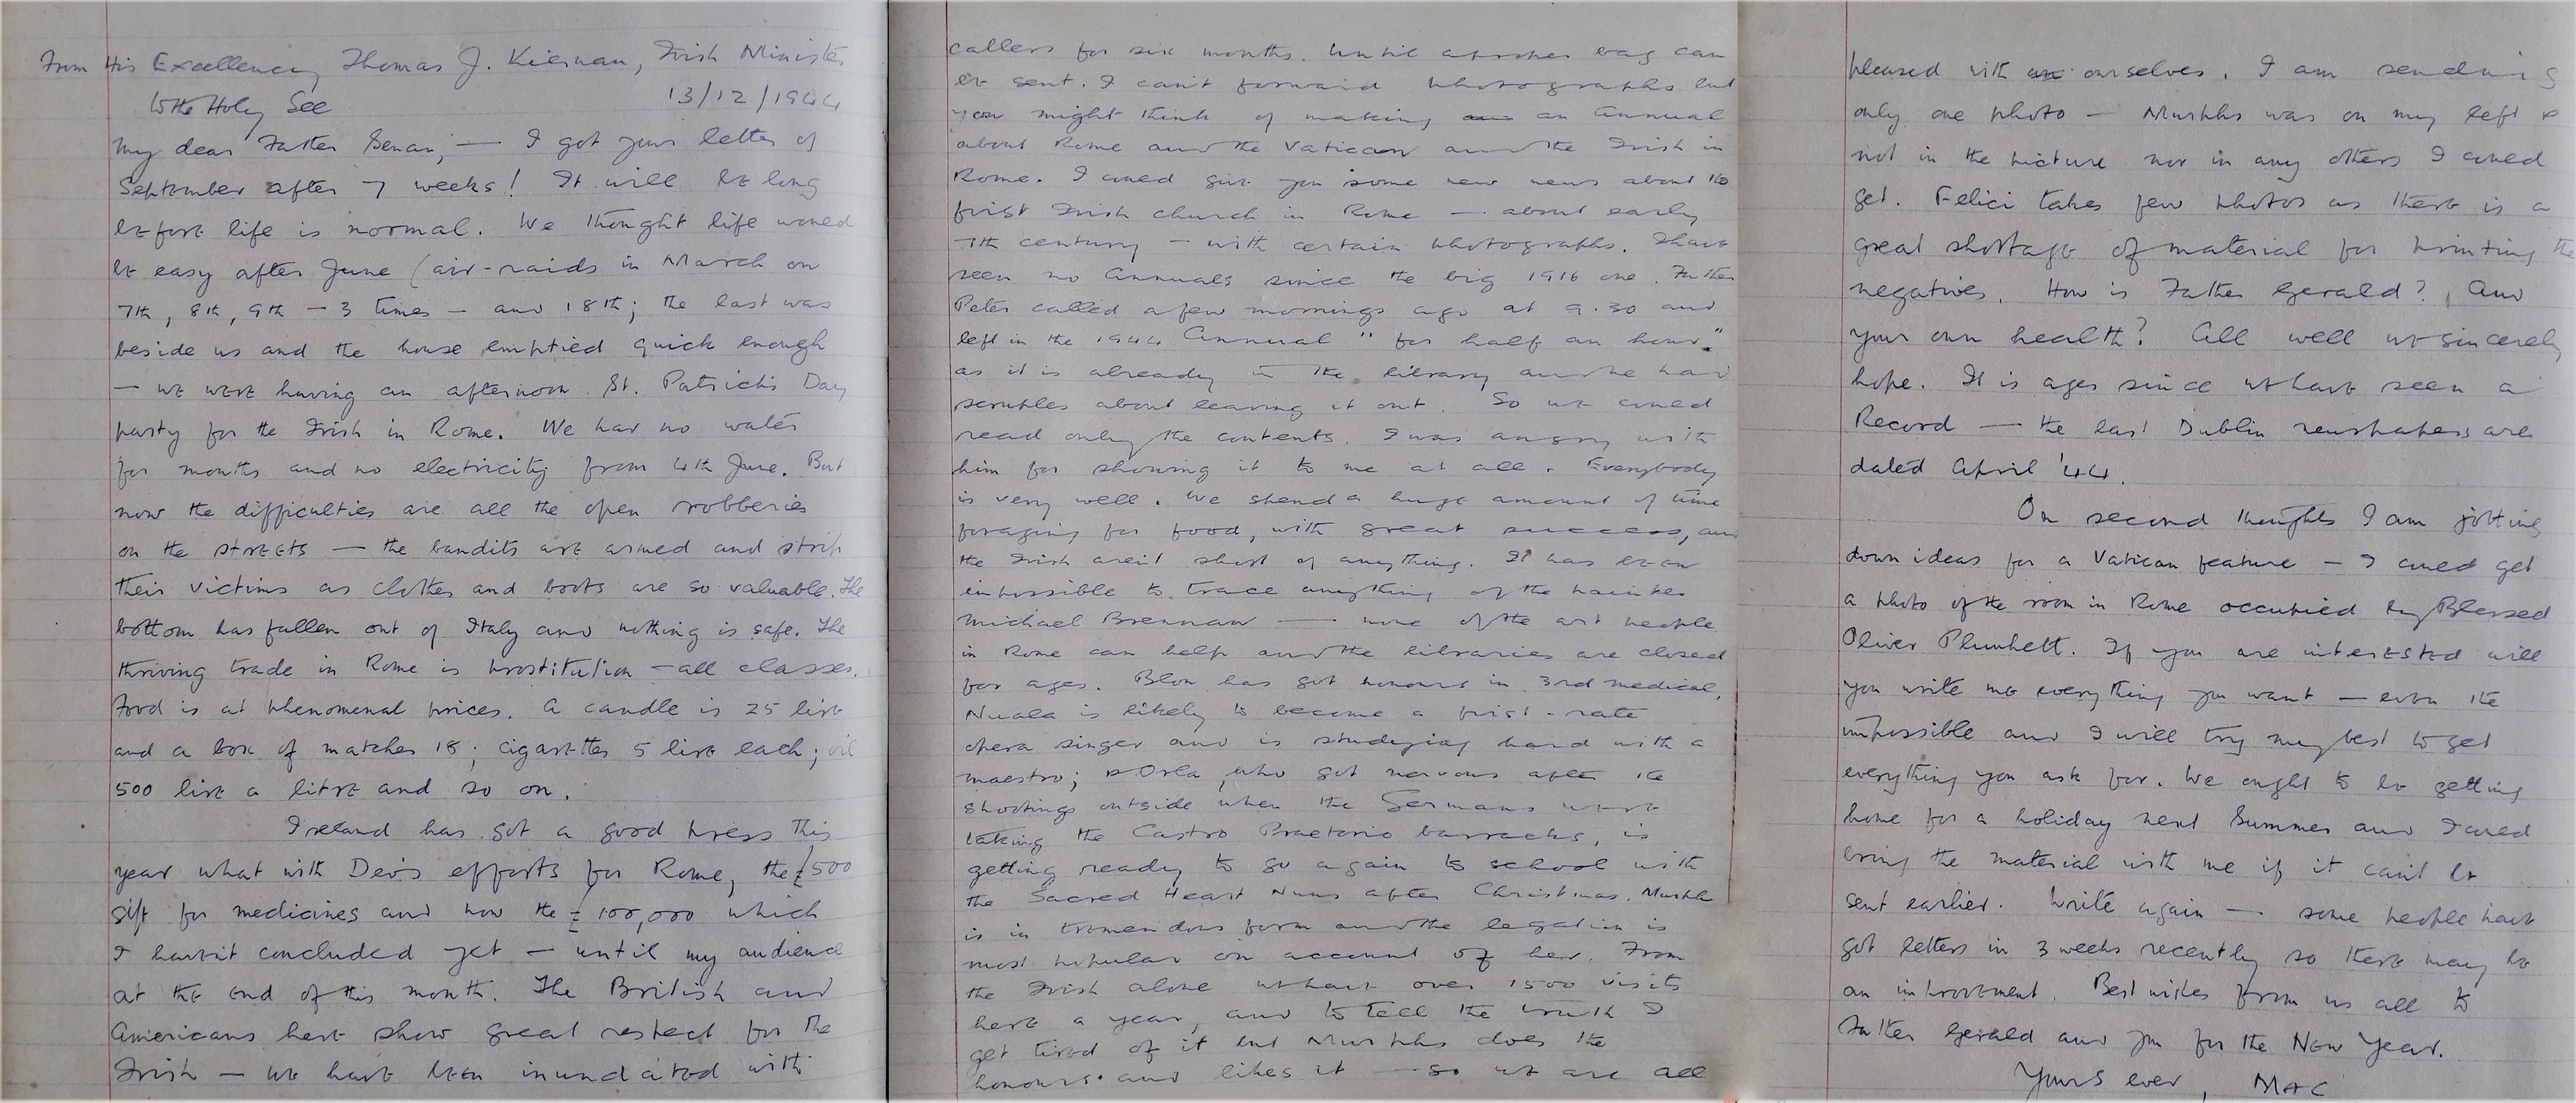 From His Excellency Thomas J. Kiernan, Irish Minister
to the Holy See 13/12/1944
My dear Father Senan, — I got your letter of
September after 7 weeks! It will be long
before life is normal. We thought life would
be easy after June (air-raids in March on
7th, 8th, 9th — 3 times — and 18th; the last was
beside us and the house emptied quick enough
— we were having an afternoon St. Patrick's Day
party for the Irish in Rome. We had no water
for months and no electricity from 4th June. But
now the difficulties are all the open robberies
on the streets — the bandits are armed and strip
their victims as clothes and boots are so valuable. The
bottom has fallen out of Italy and nothing is safe. The
thriving trade in Rome is prostitution — all classes.
Food is at phenomenal prices. A candle is 25 lire
and a box of matches 18; cigarettes 5 lire each; oil
500 lire a litre and so on.
Ireland has got a good press this
year what with Dev's efforts for Rome, the £500
gift for medicines and now the £100,000 which
I haven't concluded yet — until my audience
at the end of this month. The British and
Americans here show great respect for the
Irish — we have been inundated with
callers for six months. Until another bag can
be sent. I can't forward photographs but
you might think of making an Annual
about Rome and the Vatican and the Irish in
Rome. I could give you some new news about the
first Irish church in Rome — about early
7th century — with certain photographs. I have
seen no Annuals since the big 1916 one. Father
Peter called a few mornings ago at 9.30 and
left in the 1944 Annual "for half an hour"
as it is already in the library and he had
scruples about leaving it out. So we could
read only the contents. I was angry with
him for showing it to me at all. Everybody
is very well. We spend a huge amount of time
foraging for food, with great success, and
the Irish aren't short of anything. It has been
impossible to trace anything of the painter
Michael Brennan — none of the art people
in Rome can help and the libraries are closed
for ages. Blon has got honours in 3rd medical,
Nuala is likely to become a first-rate
opera singer and is studying hard with a
maestro; & Orla, who got nervous after the
shootings outside when the Germans were
taking the Castro Praetorio barracks, is
getting ready to go again to school with
the Sacred Heart Nuns after Christmas. Murphs
is in tremendous form and the legation is
most popular on account of her. From
the Irish alone we have over 1500 visits
here a year, and to tell the truth I
get tired of it but Murphs does the
honours and likes it — so we are all
pleased with ourselves. I am sending
only one photo — Murphs was on my left &
not in the picture nor in any others I could
get. Felici takes few photos as there is a
great shortage of material for printing the
negatives. How is Father Gerald? And
your own health? All well we sincerely
hope. It is ages since we have seen a
Record — the last Dublin newspapers are
dated April '44.
On second thoughts I am jotting
down ideas for a Vatican feature — I could get
a photo of the room in Rome occupied by Blessed
Oliver Plunkett. If you are interested will
you write me everything you want — even the
impossible and I will try my best to get
everything you ask for. We ought to be getting
home for a holiday next Summer and I could
bring the material with me if it can't be
sent earlier. Write again — some people have
got letters in 3 weeks recently so there may be
an improvement. Best wishes from us all to
Father Gerald and you for the New Year.
Yours ever, Mac